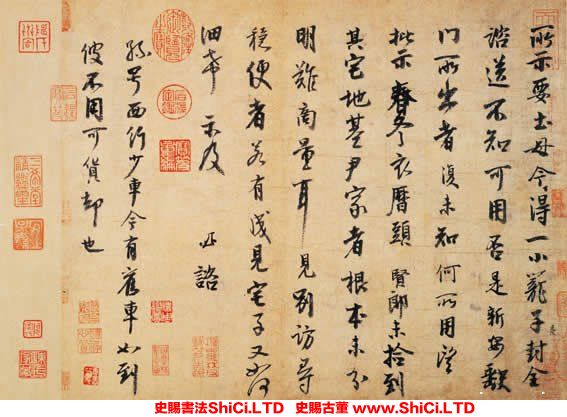 所示要土母今得一小籠子封全
諮送不知可用否是新安缺
門所出者復未知何所用望
批示春冬衣曆頭賢郎未拾到
其宅地基尹家者根本未分
明難商量耳見別訪尋
穩便者若有成見宅子又如何
細希示及 必諮
孫号西行少車今有舊車如到
彼不用可貨却也
史賜書法ShiCi.LTD 史賜古董 www.ShiCi.LTD